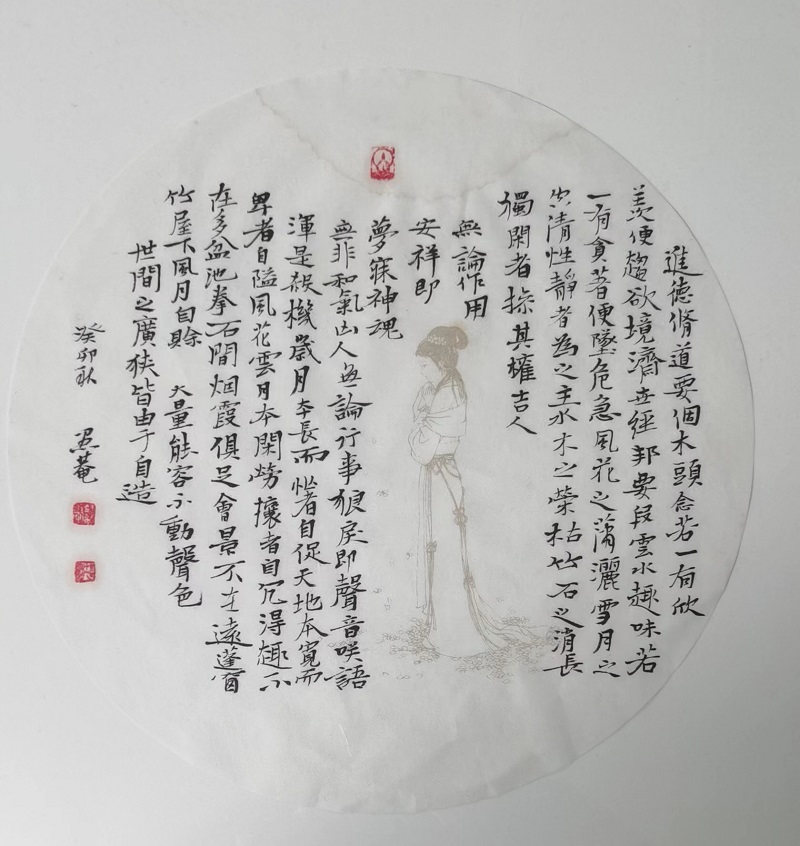 進德脩道要個木頭念若一有欣
羨便趨欲境濟世經邦要段雲水趣味若
一有貪著便墜危急風花之蕭灑雪月之
空清性靜者為之主水木之榮枯竹石之消長
獨閑者操其權吉人
無論作用
安祥即
夢寐神魂
無非和氣凶人無論行事狼戾即聲音咲語
渾是殺機歲月本長而忙者自促天地本寬而
卑者自隘風花雲月本閑勞攘者自冗得趣不
在多盆池拳石間烟霞俱足會景不在遠蓬窗
竹屋下風月自賒 大量能容不動聲色
世間之廣狹皆由于自造
癸卯秋 菴